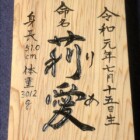 令和元年七月十五日生
命名
莉愛
りあ
身長51.0cm
体重3012g